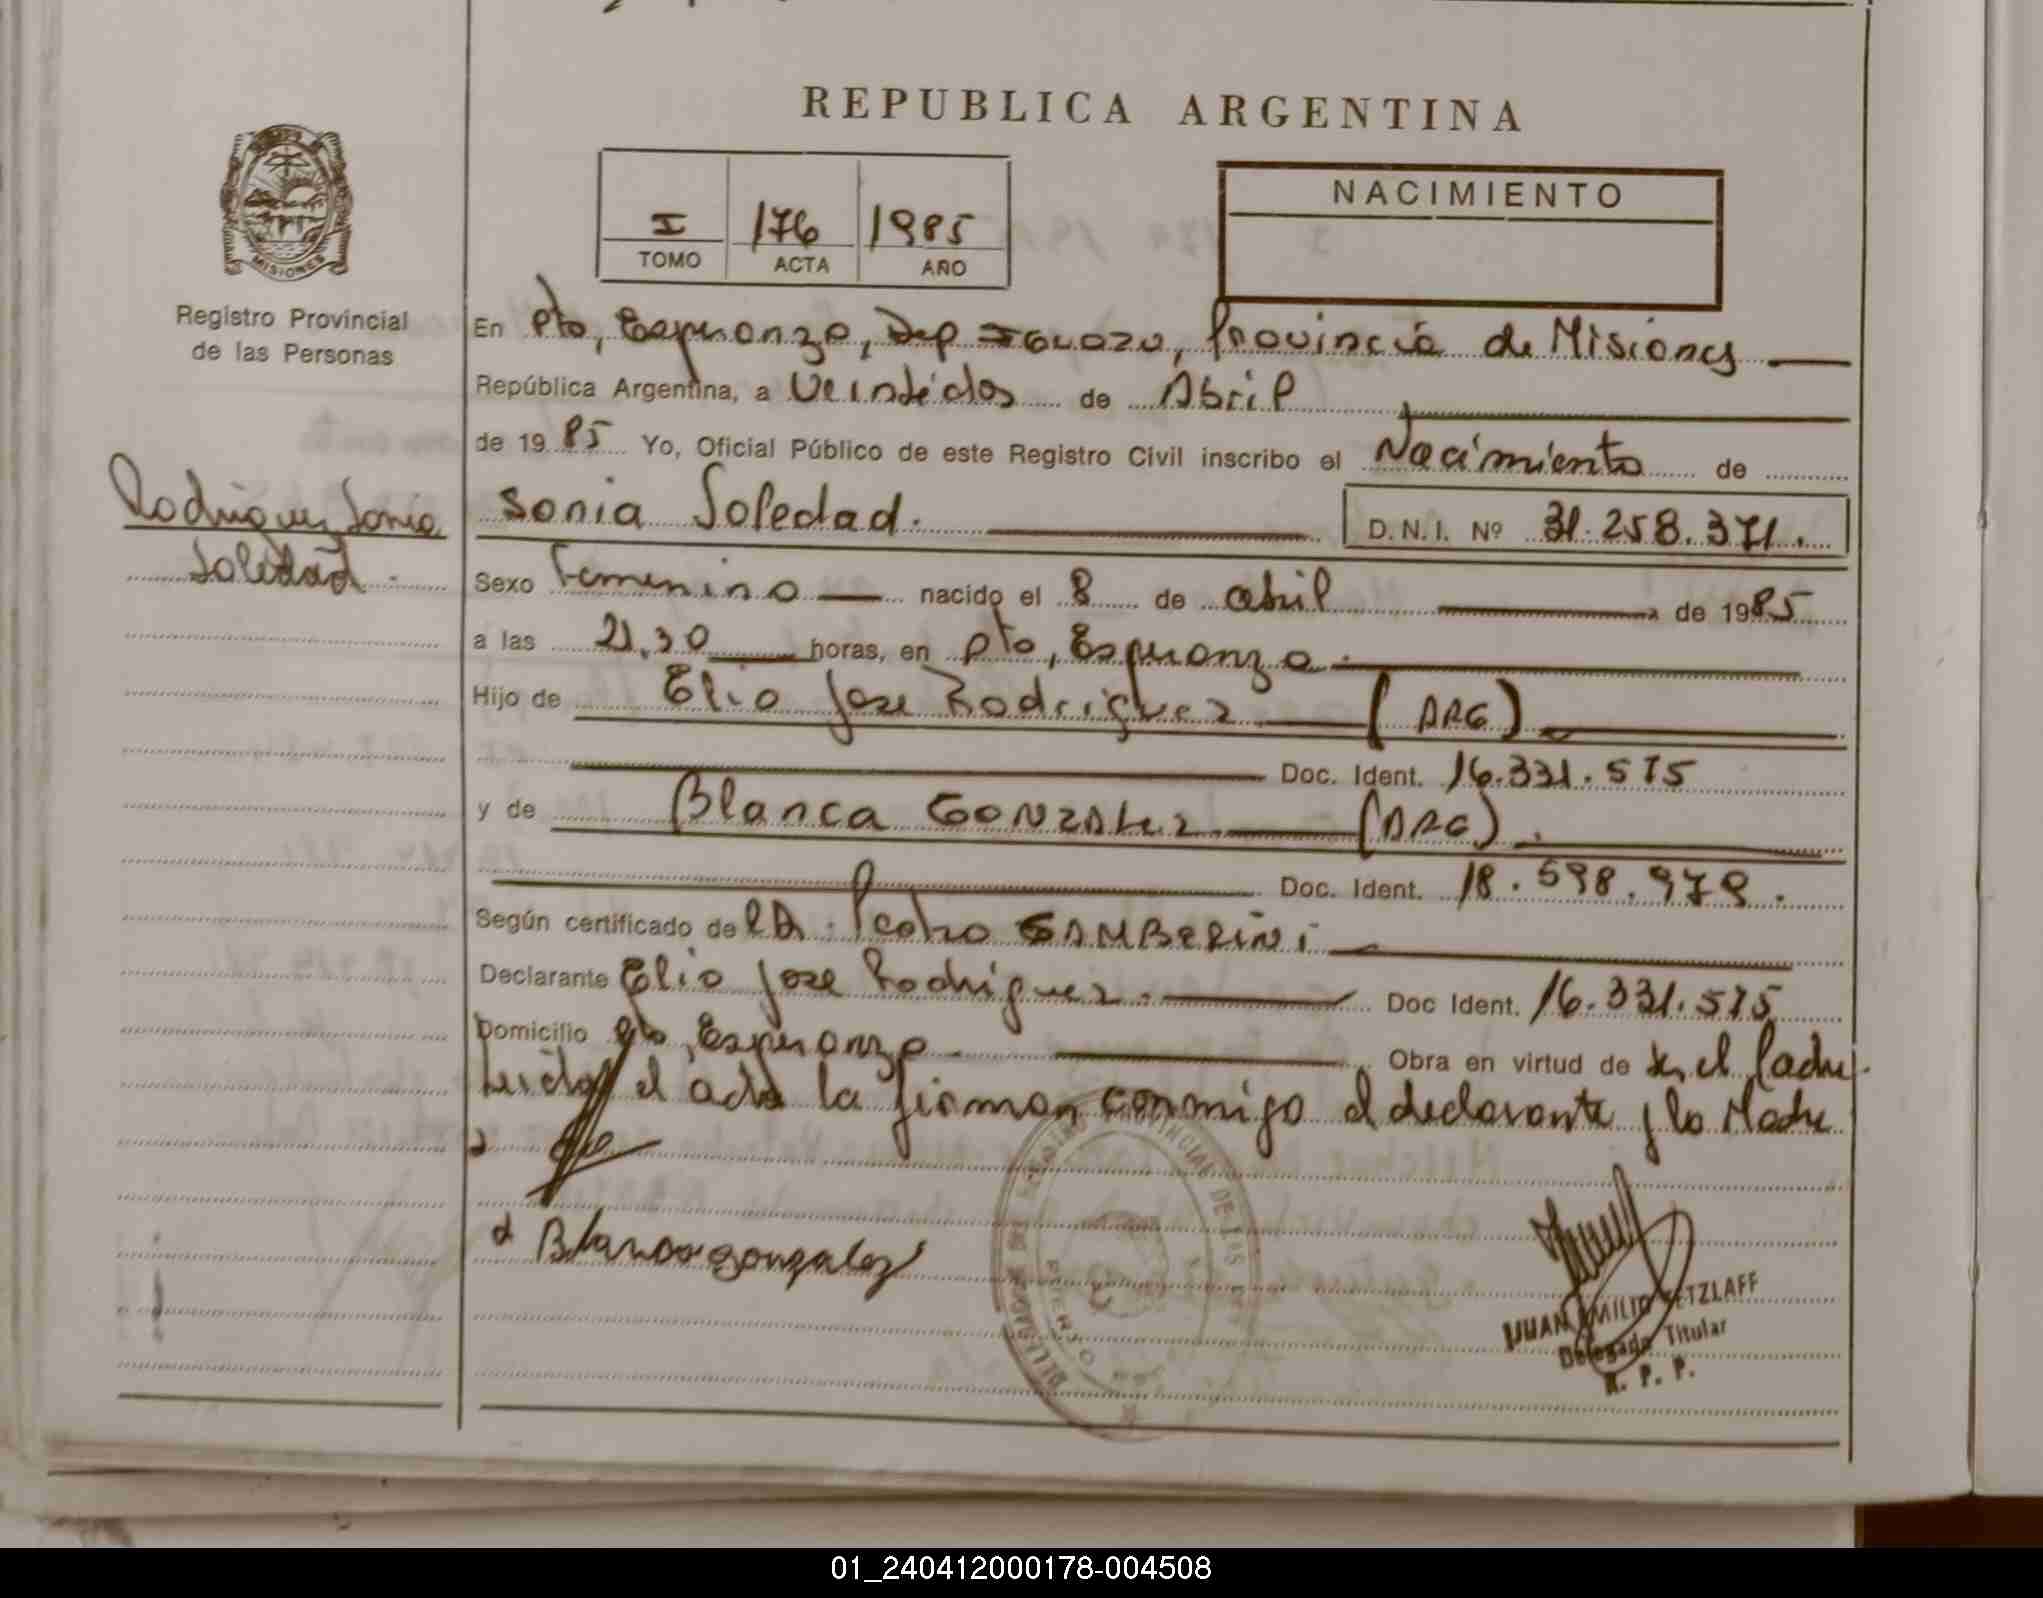 REPUBLICA ARGENTINA
MISIONES
Registro Provincial
de las Personas
I 176 1985
TOMO ACTA AÑO
NACIMIENTO
En Pto, Esperanza, Dep Iguazu, Provincia de Misiones
República Argentina, a Veintidos de Abril
de 1985 Yo, Oficial Público de este Registro Civil inscribo el Nacimiento de
Rodriguez Sonia
Soledad
Sonia Soledad. D.N.I. Nº 31.258.371.
Sexo Femenino nacido el 8 de abril de 1985
a las 21,30 horas, en Pto, Esperanza.
Hijo de Elio Jose Rodriguez (ARG)
Doc. Ident. 16.331.575
y de Blanca GONZALEZ (ARG).
Doc. Ident. 18.598.979.
Según certificado de Pedro GAMBERINI
Declarante Elio Jose Rodriguez. Doc Ident. 16.331.575
Domicilio Pto, Esperanza Obra en virtud de ser el Padre.
Leida el acta la firman conmigo el declarante y la Madre
Blanca gonzalez
DELEGACION DEL REGISTRO PROVINCIAL DE LAS
PUERTO
JUAN EMILIO RETZLAFF
Delegado Titular
R. P. P.
01_240412000178-004508